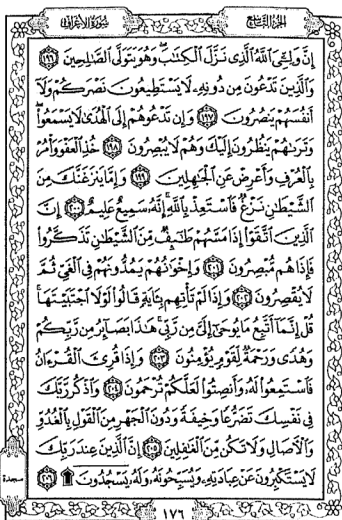 الجزء التاسع
سورة الأعراف
إِنَّ وَلِـِّۧيَ ٱللَّهُ ٱلَّذِى نَزَّلَ ٱلْكِتَـٰبَ ۖ وَهُوَ يَتَوَلَّى ٱلصَّـٰلِحِينَ ﴿١٩٦﴾
وَٱلَّذِينَ تَدْعُونَ مِن دُونِهِۦ لَا يَسْتَطِيعُونَ نَصْرَكُمْ وَلَآ
أَنفُسَهُمْ يَنصُرُونَ ﴿١٩٧﴾ وَإِن تَدْعُوهُمْ إِلَى ٱلْهُدَىٰ لَا يَسْمَعُوا۟ ۖ
وَتَرَىٰهُمْ يَنظُرُونَ إِلَيْكَ وَهُمْ لَا يُبْصِرُونَ ﴿١٩٨﴾ خُذِ ٱلْعَفْوَ وَأْمُرْ
بِٱلْعُرْفِ وَأَعْرِضْ عَنِ ٱلْجَـٰهِلِينَ ﴿١٩٩﴾ وَإِمَّا يَنزَغَنَّكَ مِنَ
ٱلشَّيْطَـٰنِ نَزْغٌ فَٱسْتَعِذْ بِٱللَّهِ ۚ إِنَّهُۥ سَمِيعٌ عَلِيمٌ ﴿٢٠٠﴾ إِنَّ
ٱلَّذِينَ ٱتَّقَوْا۟ إِذَا مَسَّهُمْ طَـٰٓئِفٌ مِّنَ ٱلشَّيْطَـٰنِ تَذَكَّرُوا۟
فَإِذَا هُم مُّبْصِرُونَ ﴿٢٠١﴾ وَإِخْوَٰنُهُمْ يَمُدُّونَهُمْ فِى ٱلْغَىِّ ثُمَّ
لَا يُقْصِرُونَ ﴿٢٠٢﴾ وَإِذَا لَمْ تَأْتِهِم بِـَٔايَةٍ قَالُوا۟ لَوْلَا ٱجْتَبَيْتَهَا ۚ
قُلْ إِنَّمَآ أَتَّبِعُ مَا يُوحَىٰٓ إِلَىَّ مِن رَّبِّى ۚ هَـٰذَا بَصَآئِرُ مِن رَّبِّكُمْ
وَهُدًى وَرَحْمَةٌ لِّقَوْمٍ يُؤْمِنُونَ ﴿٢٠٣﴾ وَإِذَا قُرِئَ ٱلْقُرْءَانُ
فَٱسْتَمِعُوا۟ لَهُۥ وَأَنصِتُوا۟ لَعَلَّكُمْ تُرْحَمُونَ ﴿٢٠٤﴾ وَٱذْكُر رَّبَّكَ
فِى نَفْسِكَ تَضَرُّعًا وَخِيفَةً وَدُونَ ٱلْجَهْرِ مِنَ ٱلْقَوْلِ بِٱلْغُدُوِّ
وَٱلْـَٔاصَالِ وَلَا تَكُن مِّنَ ٱلْغَـٰفِلِينَ ﴿٢٠٥﴾ إِنَّ ٱلَّذِينَ عِندَ رَبِّكَ
لَا يَسْتَكْبِرُونَ عَنْ عِبَادَتِهِۦ وَيُسَبِّحُونَهُۥ وَلَهُۥ يَسْجُدُونَ ۩ ﴿٢٠٦﴾
سجدة
١٧٦